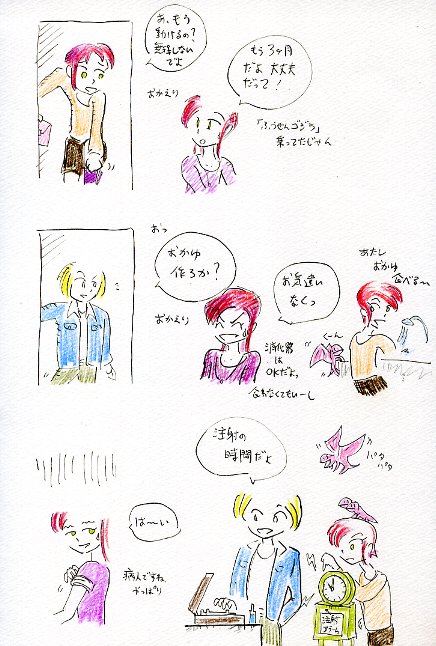 あ、もう
動けるの?
無理しない
でよ
おかえり
もう3ヶ月
だよ 大丈夫
だって!
「ふうせんゴジラ」
乗ってたじゃん
おっ
おかゆ
作ろか?
おかえり
お気遣い
なくっ
消化器
は
OKだよっ
食わなくてもいーし
あたし
おかゆ
食べる〜
くーん
注射の
時間だよ
パタ
パタ
は〜い
病んでますね、
やっぱり
注射
アラーム